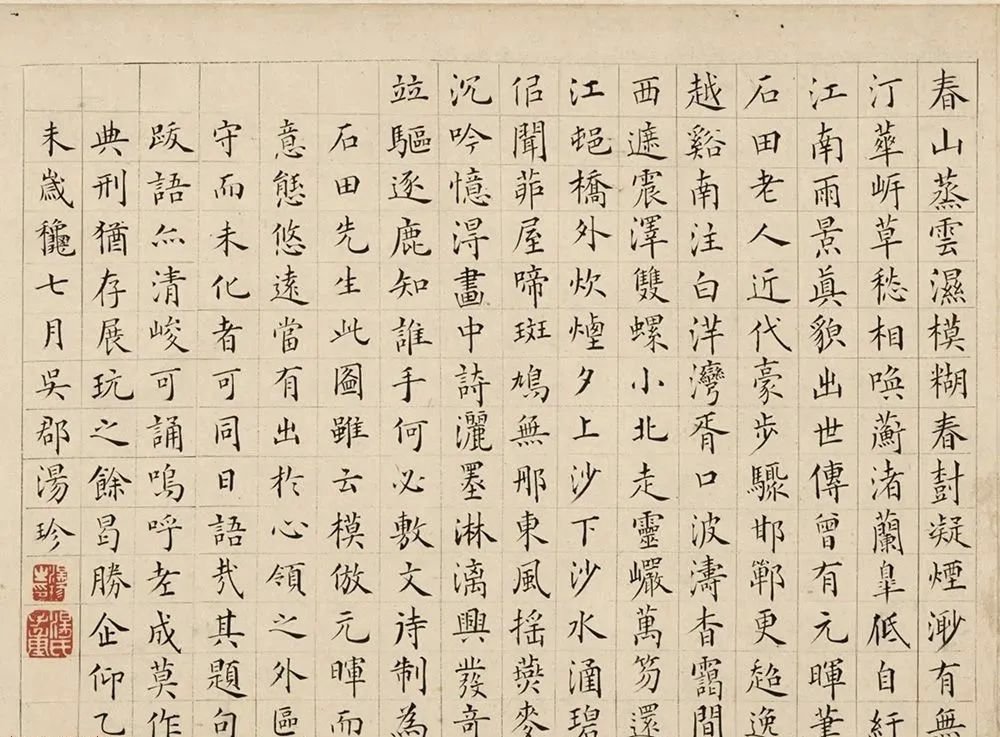 春山蒸雲濕模糊春尌凝煙渺有無
汀蕐岍草愁相喚蘅渚蘭皐低自紆
江南雨景眞貌出世傳曾有元暉筆
石田老人近代豪步驟邯鄲更超逸
越谿南注白洋灣胥口波濤杳靄間
西遮震澤雙螺小北走靈巖萬笏還
江蟃橋外炊煙夕上沙下沙水涵碧
佀聞茆屋啼斑鳩無那東風揺燕麥
沉吟憶淂畫中詩灑墨淋漓興發竒
竝驅逐鹿知誰手何必敷文待制為
石田先生此圖雖云模倣元暉而
意態悠遠當有出於心領之外區
守而未化者可同日語㦲其題句
跋語亦清峻可誦嗚呼老成莫作
典刑猶存展玩之餘曷勝企仰乙
未嵗龝七月吳郡湯珍